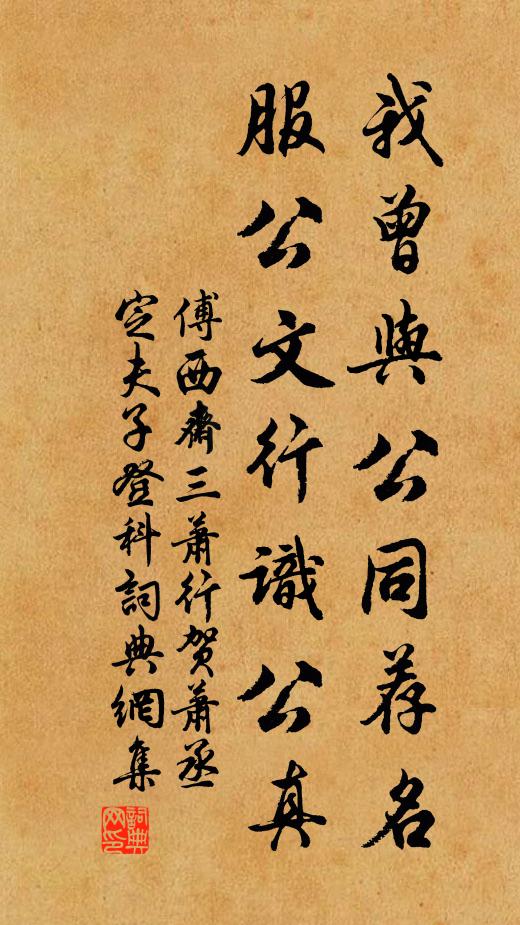 我曾與公同荐名
服公文行識公真
傅西齋三蕭行賀蕭丞
定夫子登科詞典網集
詞典网印